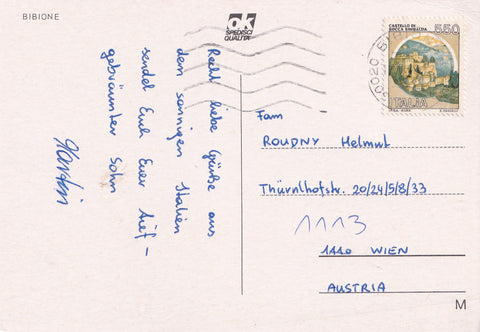 BIBIONE
ok
SPEDISCI
QUALITÀ
CASTELLO DI
ROCCA SINIBALDA
550
ITALIA
Recht liebe Grüße aus
dem sonnigen Italien
sendet Euch Euer tief-
gebräunter Sohn
Martin
Fam
ROUDNY Helmut
Thürnlhofstr. 20/24/5/8/33
1113
1110 WIEN
AUSTRIA
M